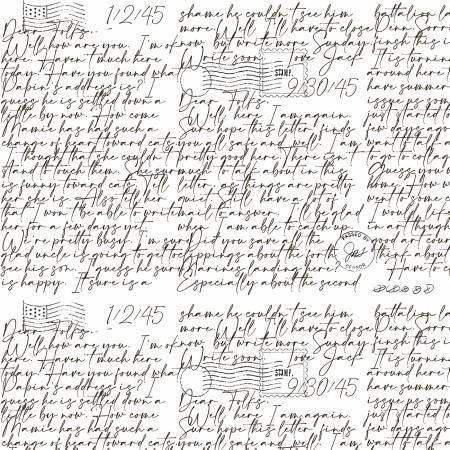 1/2/45
Dear Folks.
Well how are you. I'm ok
here. Haven't much here
today. Have you found what
Dabin's address is? I
guess he is settled down a
little by now. How come
Mamie has had such a
change of heart toward cats
I thought that she couldn't
stand to touch them. She sure
is funny toward cats. I'll
she is. Also tell her
that I won't be able to write
her for a few days yet.
We're pretty busy. I'm sure
glad uncle is going to get to
see his son. I guess he sure
is happy. It sure is a
shame he couldn't see him
more. Well I'll have to close
now but write more Sunday
Write soon Love Jack
STAMP
9/30/45
Dear Folks.
Well, here I am again.
Sure hope this letter finds
you all safe and well. I am
pretty good here. There isn't
much to talk about in this
letter, as things are pretty
quiet. Still have a lot of
mail to answer. I'll be glad
when I am able to catch up.
Did you save all the
clippings about the forth
Marines landing here
Especially about the second
battalion la
Denn Sorro
finish this i
It is turnin
around here t
have summer
issue us som
just started to
few days ago
want to talk a
to go to collag
Guess you w
home. How w
went to some c
I would life
in art though
good art cour
think about
Have to c
PASSED BY
CENSOR
1/2/45
Dear Folks.
Well how are you. I'm ok
here. Haven't much here
today. Have you found what
Dabin's address is? I
guess he is settled down a
little by now. How come
Mamie has had such a
change of heart toward cats
shame he couldn't see him
more. Well I'll have to close
now but write more Sunday
Write soon Love Jack
STAMP
9/30/45
Dear Folks.
Well, here I am again.
Sure hope this letter finds
you all safe and well. I am
battalion la
Denn Sorro
finish this i
It is turnin
around here t
have summer
issue us som
just started to
few days ago
want to talk a